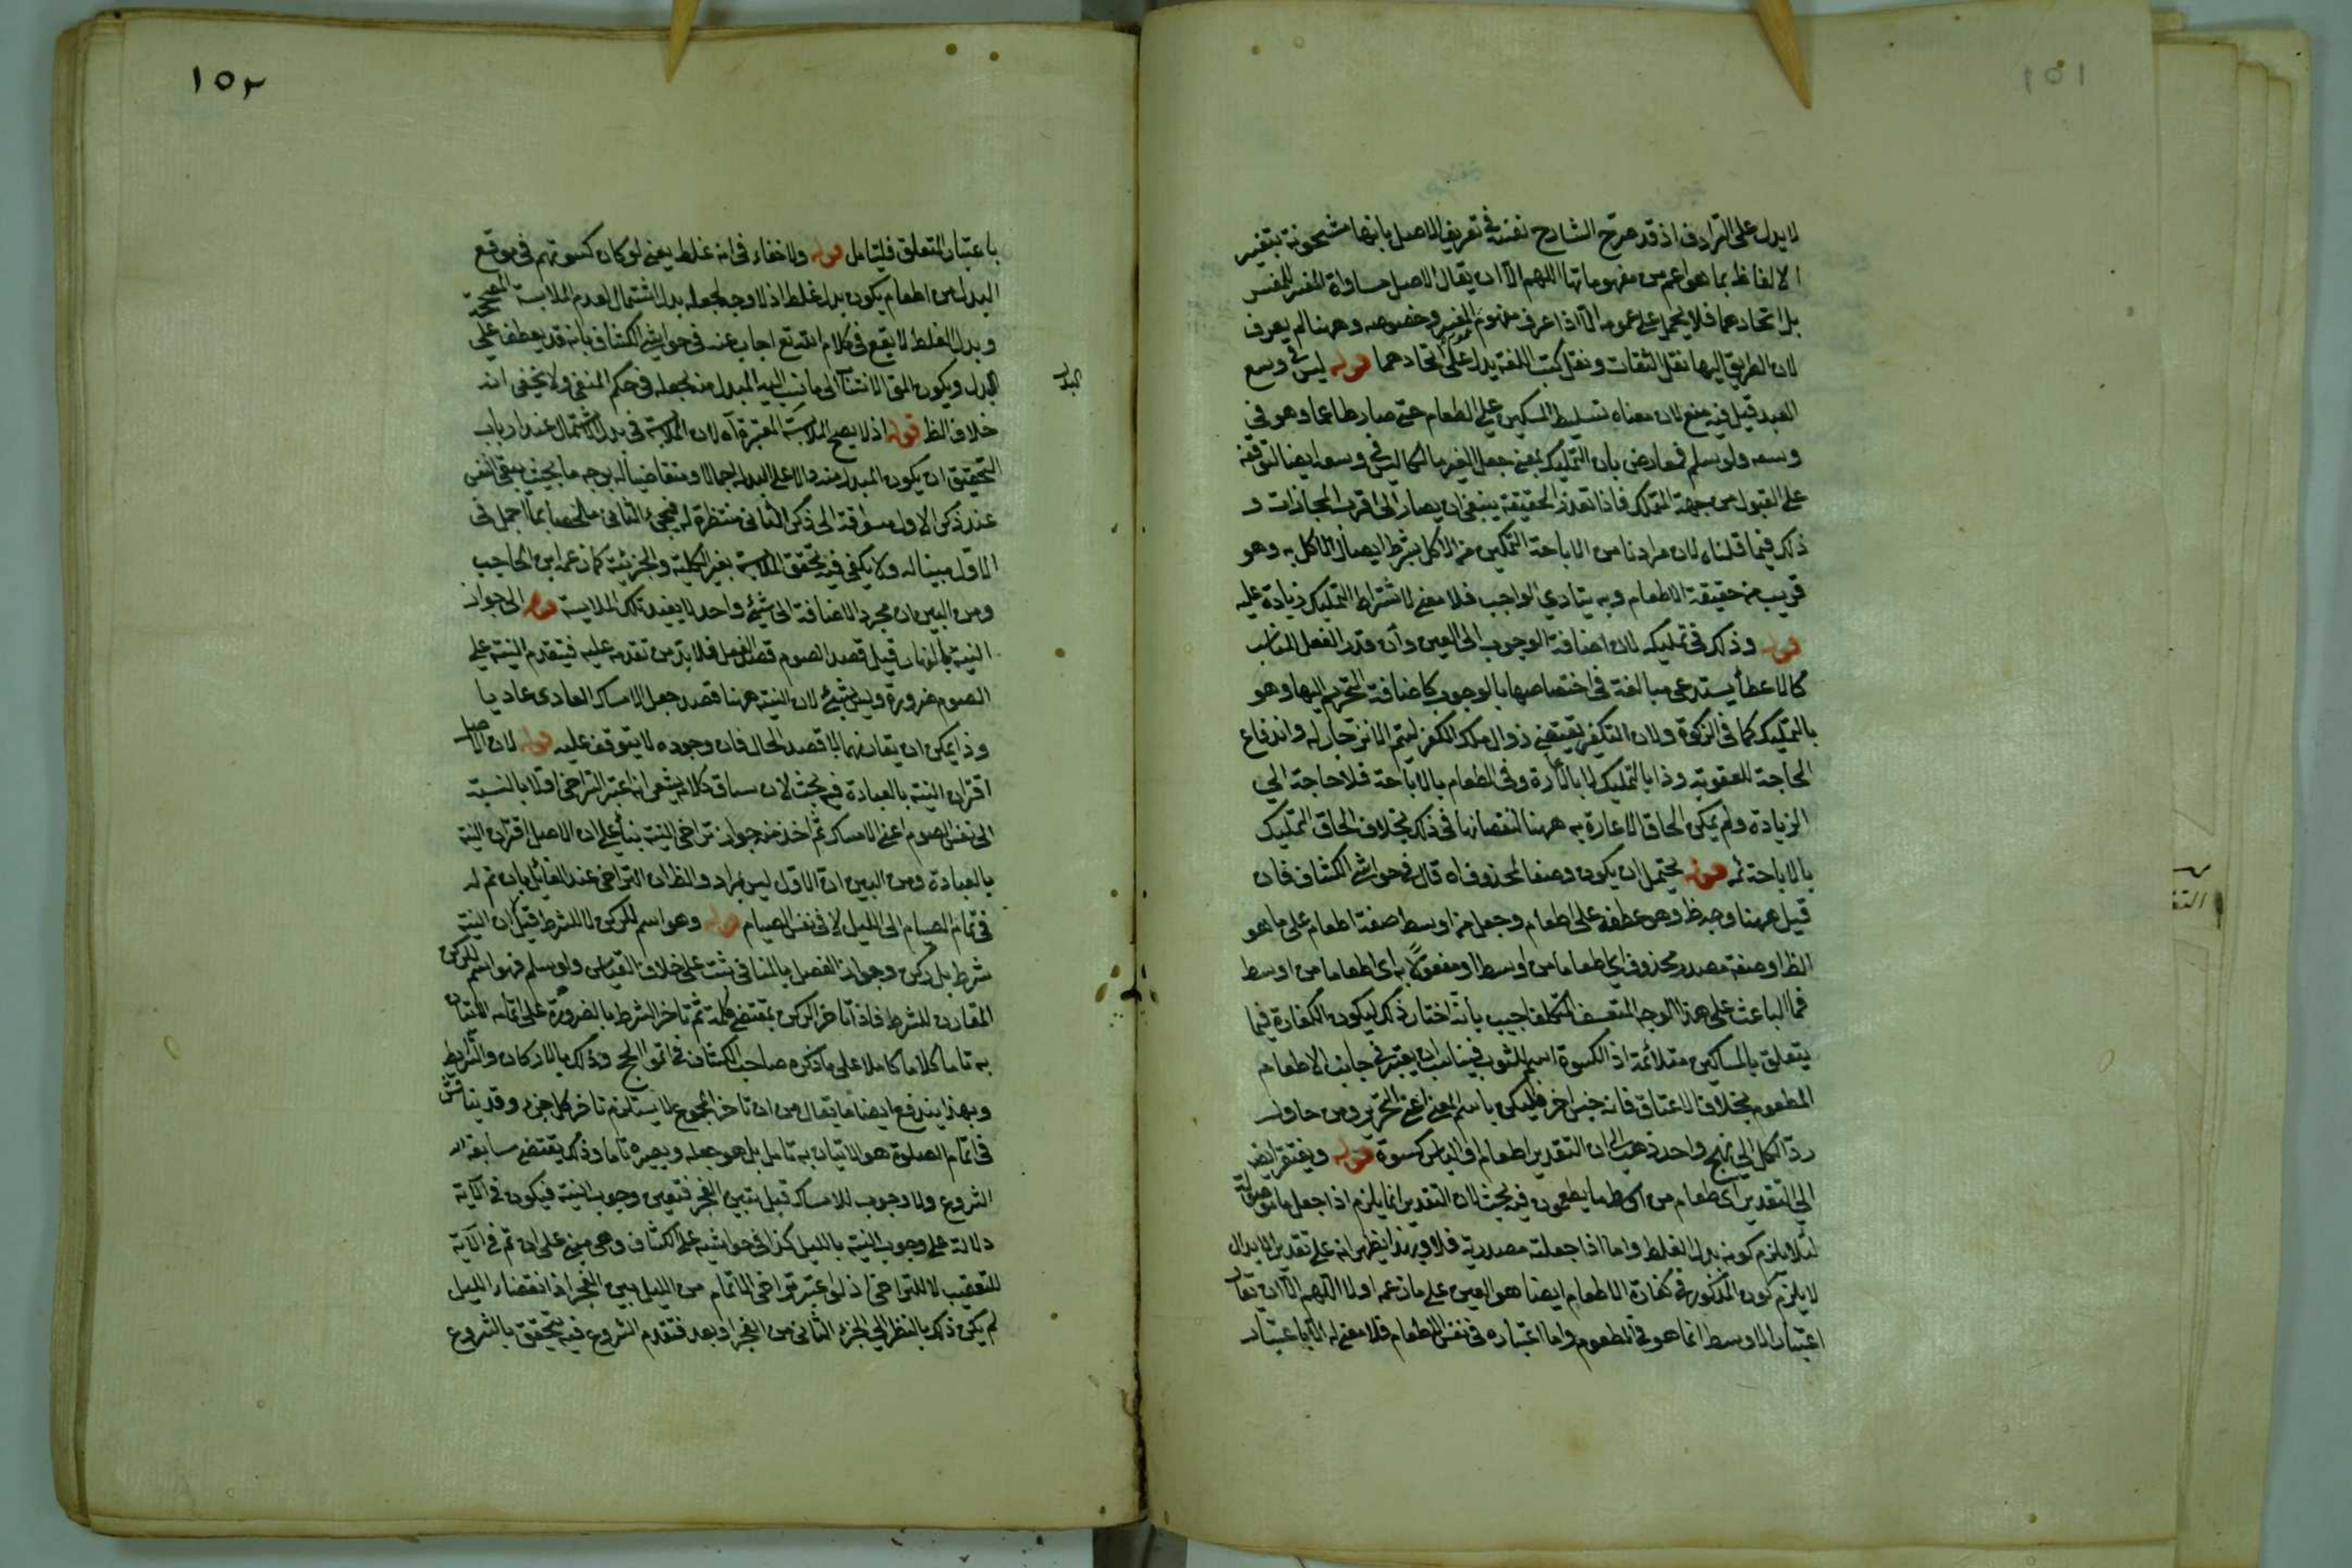 ١٥١
لا يدل على الترادف اذ قد صرح الشارح نفسه في تعريف الاصل بانها مشحونة بتفسير
الالفاظ بما هو اعم من مفهوماتها اللهم الا ان يقال الاصل مساواة المفسر للمفسر
بل اتحادهما فلا يحمل على عمومه الا اذا عرف مفهوم المفسر وخصوصه وههنا لم يعرف
لان الطريق اليها نقل الثقات ونقل كتب اللغة يدل على اتحادهما قوله ليس في وسع
العبد قيل فيه منع لان معناه تسليط المسكين على الطعام حتى صار طاعما وهو في
وسعه ولو سلم فمعارض بان التمليك بمعنى جعل الغير مالكا ليس في وسعه ايضا لتوقفه
على القبول من جهة المتملك فاذا تعذر الحقيقة ينبغي ان يصار الى اقرب المجازات و
ذلك فيما قلناه لان مرادنا من الاباحة التمكين من الاكل بشرط ايصال الاكل به وهو
قريب من حقيقة الاطعام وبه يتادى الواجب فلا معنى لاشتراط التمليك زيادة عليه
قوله وذلك في تمليكه لان اضافة الوجوب الى العين وان قدر الفعل المناسب
كالاعطاء يستدعي مبالغة في اختصاصها بالوجوب كاضافة التحريم اليها وهو
بالتمليك كما في الزكوة ولان التكفير يقتضي زوال ملك المكفر ليتم الانزجار له واندفاع
الحاجة للعقوبة وذا بالتمليك لا بالاعارة وفي الطعام بالاباحة فلا حاجة الى
الزيادة ولم يمكن الحاق الاعارة به ههنا لنقصانها في ذلك بخلاف الحاق التمليك
بالاباحة ثمه قوله يحتمل ان يكون وصفا لمحذوف اه قال في حواشي الكشاف فان
قيل ههنا وجه ظ وهو عطفه على اطعام وجعل من اوسط صفة اطعام على ما هو
الظ او صفة مصدر محذوف اي طعاما من اوسط او مفعولا به اي اطعاما من اوسط
فما الباعث على هذا الوجه المتعسف المتكلف اجيب بانه اختار ذلك ليكون الكفارة فيما
يتعلق بالمساكين متلائمة اذ الكسوة اسم للثوب فيناسب ان يعتبر في جانب الاطعام
المطعوم بخلاف الاعتاق فانه جنس اخر فليكن باسم المعنى اعني التحرير ومن حاول
رد الكل الى نهج واحد ذهب الى ان التقدير اطعام والباس كسوة قوله ويفتقر ايض
الى التقدير اي طعام من اوسط ما يطعمون فيه بحث لان التقدير انما يلزم اذا جعل ما موصولة
لئلا يلزم كونه بدل الغلط واما اذا جعلت مصدرية فلا وبهذا يظهر انه على تقدير الابدال
لا يلزم كون المذكور في كفارة الاطعام ايضا هو العين على ما زعمه اولا اللهم الا ان يقال
اعتبار الاوسط انما هو في المطعوم واما اعتباره في نفس الاطعام فلا معنى له الا باعتبار
١٥٢
باعتبار المتعلق فليتامل قوله ولا خفاء في انه غلط يعني لو كان كسوتهم في موقع
البدل من اطعام يكون بدل غلط اذ لا وجه لجعله بدل اشتمال لعدم الملابسة المصححة
وبدل الغلط لا يقع في كلام الله تع اجاب عنه في حواشي الكشاف بانه قد يعطف على
البدل ويكون المق الانتساب الى ما نسب اليه المبدل منه بجعله في حكم المنفي ولا يخفى انه
البدل
خلاف الظ قوله اذ لا يصح الملابسة المعتبرة اه لان الملابسة في بدل الاشتمال عند ارباب
التحقيق ان يكون المبدل منه دالا على البدل اجمالا ومتقاضيا له بوجه ما بحيث يبقى النفس
عند ذكر الاول مشوقة الى ذكر الثاني منتظرة له فيجيء الثاني ملخصا لما اجمل في
الاول مبينا له ولا يكفي فيه تحقق الملابسة بغير الكلية والجزئية كما زعمه ابن الحاجب
ومن البين ان مجرد الاضافة الى شيء واحد لا يفيد تلك الملابسة قوله الى جواز
النية بالنهار قيل قصد الصوم قصد الفعل فلا بد من تقدمه عليه فيتقدم النية على
الصوم ضرورة وليس بشيء لان النية ههنا قصد جعل الامساك العادي عاديا
وذا يمكن ان يقارنهما لا قصد الحال فان وجوده لا يتوقف عليه قوله لان الاصل
اقتران النية بالعبادة فيه بحث لان سياق كلامه يشعر انه اعتبر التراخي اولا بالنسبة
الى نفس الصوم اعني الامساك ثم اخذ منه جواز تراخي النية بناء على ان الاصل اقتران النية
بالعبادة ومن البين ان الاول ليس بمراد والظ ان التراخي عند القائل بان ثم له
في تمام الصيام الى الليل لا في نفس الصيام قوله وهو اسم للركن لا للشرط قيل ان النية
شرط بل ركن وجواز الفصل بالمنافي ثبت على خلاف القياس ولو سلم فهو اسم للركن
المقارن للشرط فاذا تاخر الركن بمقتضى كلمة ثم تاخر الشرط بالضرورة على اتمامه الاتيان
به تاما كلاما كاملا على ما ذكره صاحب الكشاف في اتموا الحج وذلك بالاركان والشرايط
وبهذا يندفع ايضا ما يقال من ان تاخر المجموع لا يستلزم تاخر كل جزء وقد يناقش
في اتمام الصلوة هو الاتيان به تامل بل هو جعله ويصيره تاما وذلك يقتضي سابقة
الشروع ولا وجوب للامساك قبل تبين الفجر فتعين وجوب النية فيكون في الاية
دلالة على وجوب النية بالليل كذا في حواشيه على الكشاف وهي مبني على ان ثم في الاية
للتعقيب لا للتراخي اذ لو اعتبر تراخي الاتمام من الليل بين الفجر اذ انقضاء الليل
لم يكن ذلك بالنظر الى الجزء الثاني من الفجر او بعد فتقدم الشروع فيه يتحقق بالشروع